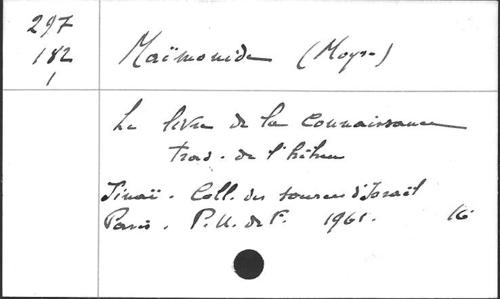 297
182
1
Maïmonide (Moyse)
Le livre de la Connaissance
trad. de l'hébreu
Sinaï. Coll. des sources d'Israël
Paris. P.U.de F. 1961. 16